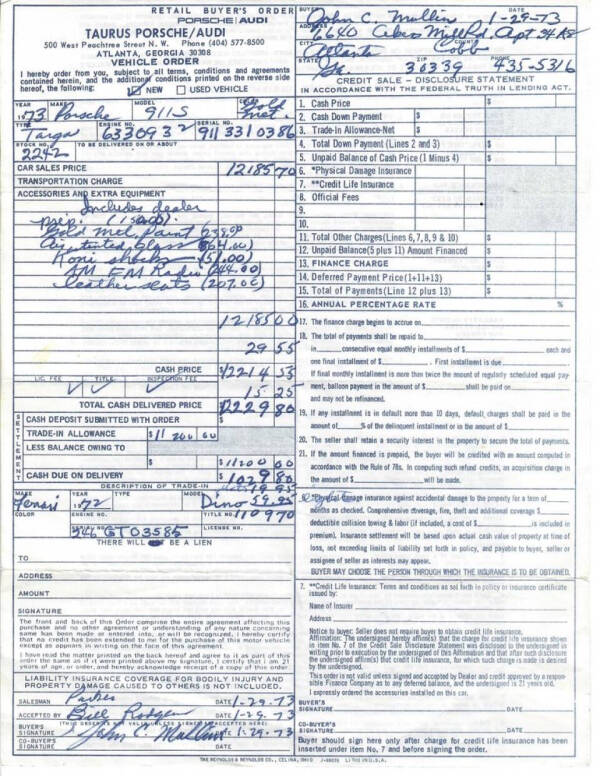 RETAIL BUYER'S ORDER
PORSCHE/AUDI
TAURUS PORSCHE/AUDI
500 West Peachtree Street N. W. Phone (404) 577-8500
ATLANTA, GEORGIA 30308
VEHICLE ORDER
I hereby order from you, subject to all terms, conditions and agreements
contained herein, and the additional conditions printed on the reverse side
hereof, the following: NEW USED VEHICLE
YEAR MAKE MODEL
1973 Porsche 911S Gold Met.
TYPE ENGINE NO. SERIAL NO.
Targa 6330932 9113310386
STOCK NO. TO BE DELIVERED ON OR ABOUT
2242
CAR SALES PRICE 12185 70
TRANSPORTATION CHARGE
ACCESSORIES AND EXTRA EQUIPMENT
Includes dealer
prep.
Gold Met. Paint
Air, tinted Glass
Koni shocks (51.00)
AM FM Radio (244.00)
leather seats (207.00)
12185 00
29.55
CASH PRICE 12214 55
LIC. FEE TITLE INSPECTION FEE
15.25
TOTAL CASH DELIVERED PRICE 12229 80
SETTLEMENT
CASH DEPOSIT SUBMITTED WITH ORDER
TRADE-IN ALLOWANCE $11 200 00
LESS BALANCE OWING TO
$11200 00
CASH DUE ON DELIVERY 1029 80
DESCRIPTION OF TRADE-IN
MAKE YEAR TYPE MODEL
Ferrari 1972 Dino
COLOR ENGINE NO. TITLE NO. 110970
SERIAL NO. LICENSE NO.
246 GT03585
THERE WILL BE A LIEN
TO
ADDRESS
AMOUNT
SIGNATURE
The front and back of this Order comprise the entire agreement affecting this
purchase and no other agreement or understanding of any nature concerning
same has been made or entered into, or will be recognized. I hereby certify
that no credit has been extended to me for the purchase of this motor vehicle
except as appears in writing on the face of this agreement.
I have read the matter printed on the back hereof and agree to it as part of this
order the same as if it were printed above my signature, I certify that I am 21
years of age, or older, and hereby acknowledge receipt of a copy of this order.
LIABILITY INSURANCE COVERAGE FOR BODILY INJURY AND
PROPERTY DAMAGE CAUSED TO OTHERS IS NOT INCLUDED.
SALESMAN DATE 1-29-73
ACCEPTED BY Bill DATE 1-29-73
BUYER'S SIGNATURE John C Mullin DATE 1-29-73
CO-BUYER'S SIGNATURE DATE
BUYER John C. Mullin DATE 1-29-73
ADDRESS 6640 Akers Mill Rd, Apt 34 A8
CITY Atlanta COUNTY Cobb
STATE Ga. ZIP 30339 PHONE 435-5316
CREDIT SALE - DISCLOSURE STATEMENT
IN ACCORDANCE WITH THE FEDERAL TRUTH IN LENDING ACT.
1. Cash Price $
2. Cash Down Payment $
3. Trade-In Allowance-Net $
4. Total Down Payment (Lines 2 and 3) $
5. Unpaid Balance of Cash Price (1 Minus 4) $
6. *Physical Damage Insurance $
7. **Credit Life Insurance $
8. Official Fees $
9.
10.
11. Total Other Charges(Lines 6,7,8,9 & 10) $
12. Unpaid Balance(5 plus 11) Amount Financed $
13. FINANCE CHARGE $
14. Deferred Payment Price (1+11+13) $
15. Total of Payments (Line 12 plus 13) $
16. ANNUAL PERCENTAGE RATE %
17. The finance charge begins to accrue on
18. The total of payments shall be repaid to
in consecutive equal monthly installments of $ each and
one final installment of $ . First installment is due
If final monthly installment is more than twice the amount of regularly scheduled equal pay-
ment, balloon payment in the amount of $ shall be paid on
and may not be refinanced.
19. If any installment is in default more than 10 days, default charges shall be paid in the
amount of % of the delinquent installment or in the amount of $
20. The seller shall retain a security interest in the property to secure the total of payments.
21. If the amount financed is prepaid, the buyer will be credited with an amount computed in
accordance with the Rule of 78s. In computing such refund credits, an acquisition charge in
the amount of $ will be made.
*Physical damage insurance against accidental damage to the property for a term of
months as checked. Comprehensive coverage, fire, theft and additional coverage $
deductible collision towing & labor (if included, a cost of $ is included in
premium). Insurance settlement will be based upon actual cash value of property at time of
loss, not exceeding limits of liability set forth in policy, and payable to buyer, seller or
assignee of seller as interests may appear.
BUYER MAY CHOOSE THE PERSON THROUGH WHICH THE INSURANCE IS TO BE OBTAINED.
7. **Credit Life Insurance: Terms and conditions as set forth in policy or insurance certificate
issued by:
Name of Insurer
Address
Notice to buyer: Seller does not require buyer to obtain credit life insurance.
Affirmation: The undersigned hereby affirm(s) that the charge for credit life insurance shown
in item No. 7 of the Credit Sale Disclosure Statement was disclosed to the undersigned in
writing prior to execution by the undersigned of this Affirmation and that after such disclosure
the undersigned affirm(s) that credit life insurance, for which such charge is made is desired
by the undersigned.
This order is not valid unless signed and accepted by Dealer and credit approved by a respon-
sible Finance Company as to any deferred balance, and the undersigned is 21 years old.
I expressly ordered the accessories installed on this car.
BUYER'S SIGNATURE DATE
CO-BUYER'S SIGNATURE DATE
Buyer should sign here only after charge for credit life insurance has been
inserted under item No. 7 and before signing the order.
THE REYNOLDS & REYNOLDS CO., CELINA, OHIO LITHO IN U.S.A.